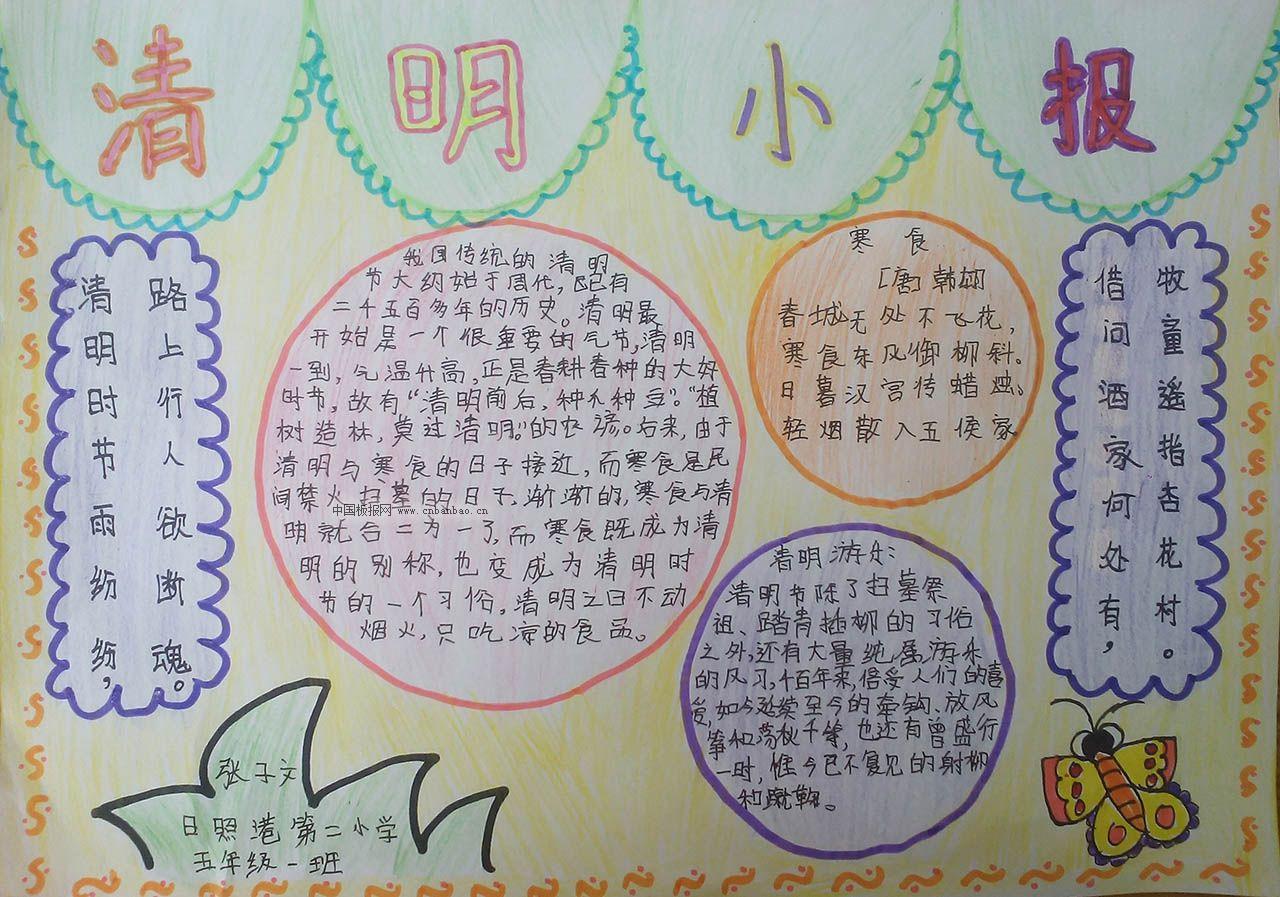 清明小报
清明时节雨纷纷，
路上行人欲断魂。
我国传统的清明
节大约始于周代，已有
二千五百多年的历史。清明最
开始是一个很重要的气节，清明
一到，气温升高，正是春耕春种的大好
时节，故有“清明前后，种瓜种豆”。“植
树造林，莫过清明。”的农谚。后来，由于
清明与寒食的日子接近，而寒食是民
间禁火扫墓的日子，渐渐的，寒食与清
明就合二为一了，而寒食既成为清
明的别称，也变成为清明时
节的一个习俗，清明之日不动
烟火，只吃凉的食品。
中国板报网 www.cnbanbao.cn
寒食
[唐]韩翃
春城无处不飞花，
寒食东风御柳斜。
日暮汉宫传蜡烛，
轻烟散入五侯家
清明游乐：
清明节除了扫墓祭
祖、踏青插柳的习俗
之外，还有大量纯属游乐
的风习，千百年来，倍受人们的喜
爱，如今延续至今的牵钩、放风
筝和荡秋千等，也还有曾盛行
一时，惟今已不复见的射柳
和蹴鞠。
借问洒家何处有，
牧童遥指杏花村。
张子文
日照港第二小学
五年级一班